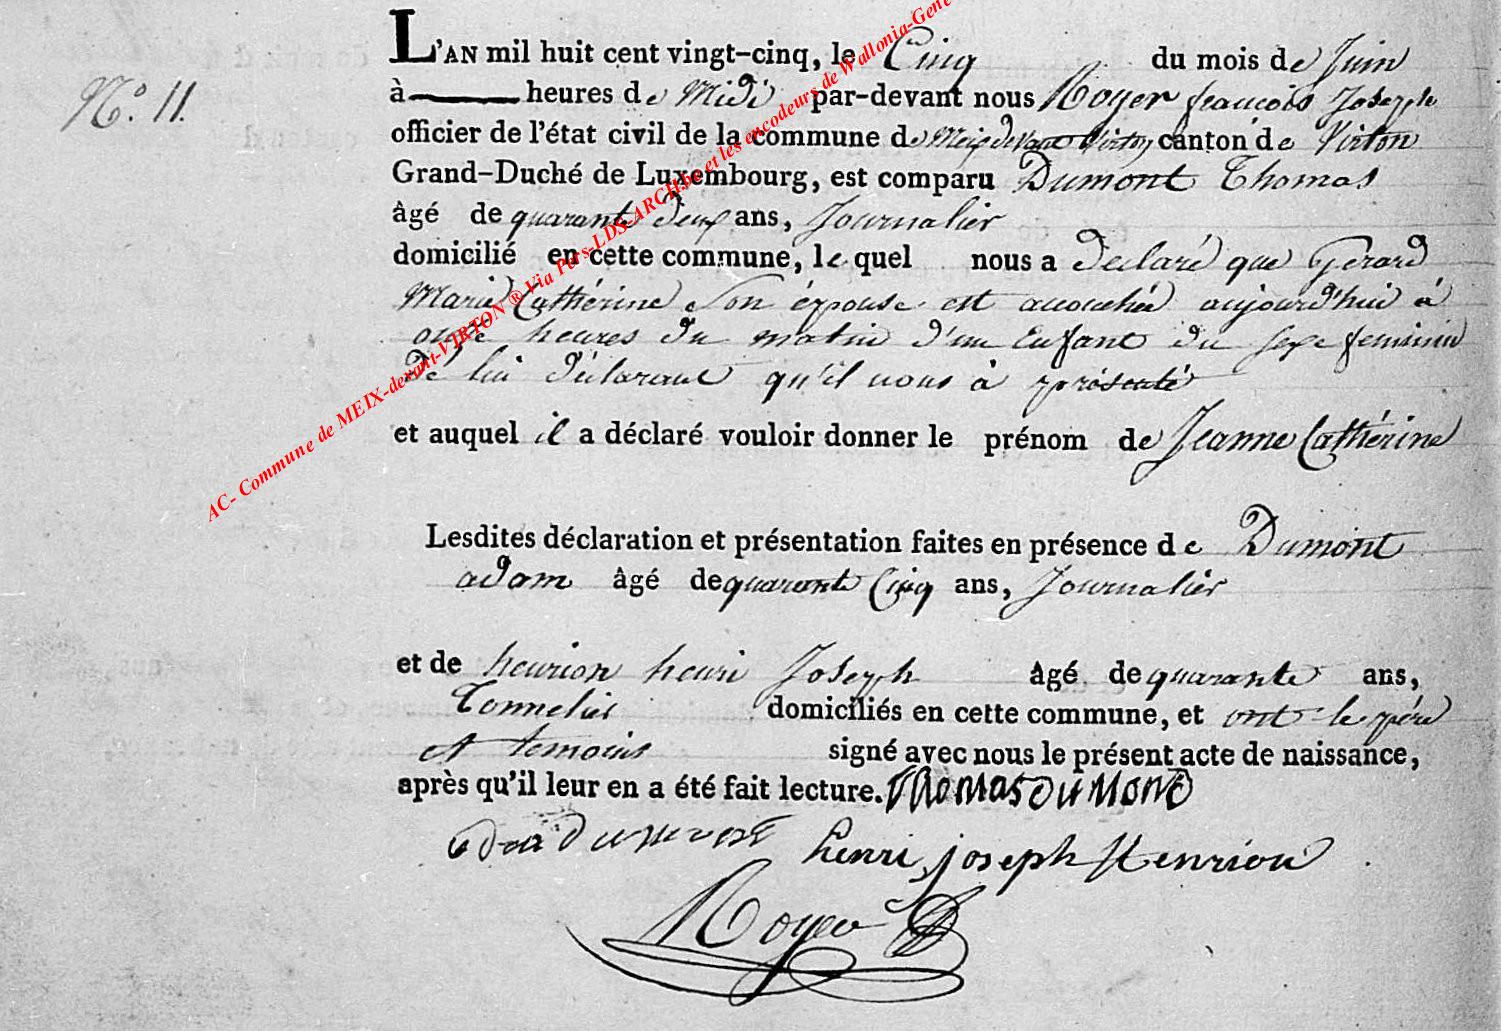 L'AN mil huit cent vingt-cinq, le Cinq du mois de Juin
N.º 11.
à heures de Midi par-devant nous Royer francois Joseph
officier de l'état civil de la commune de Meix devant Virton canton de Virton
Grand-Duché de Luxembourg, est comparu Dumont Thomas
âgé de quarante deux ans, Journalier
domicilié en cette commune, le quel nous a déclaré que Gerard
Marie Cathérine son épouse est accouchée aujourd'hui à
onze heures du matin d'un Enfant du sexe feminin
de lui déclarant qu'il nous à présenté
et auquel il a déclaré vouloir donner le prénom de Jeanne Cathérine
Lesdites déclaration et présentation faites en présence de Dumont
adam âgé de quarante Cinq ans, Journalier
et de henrion henri Joseph âgé de quarante ans,
Tonnelier domiciliés en cette commune, et ont le père
et temoins signé avec nous le présent acte de naissance,
après qu'il leur en a été fait lecture. Thomas Dumont
Dumont henri joseph Henrion
Royer
AC- Commune de MEIX-devant-VIRTON ® Via Pers-LDS-ARCH.be et les encodeurs de Wallonia-Gene